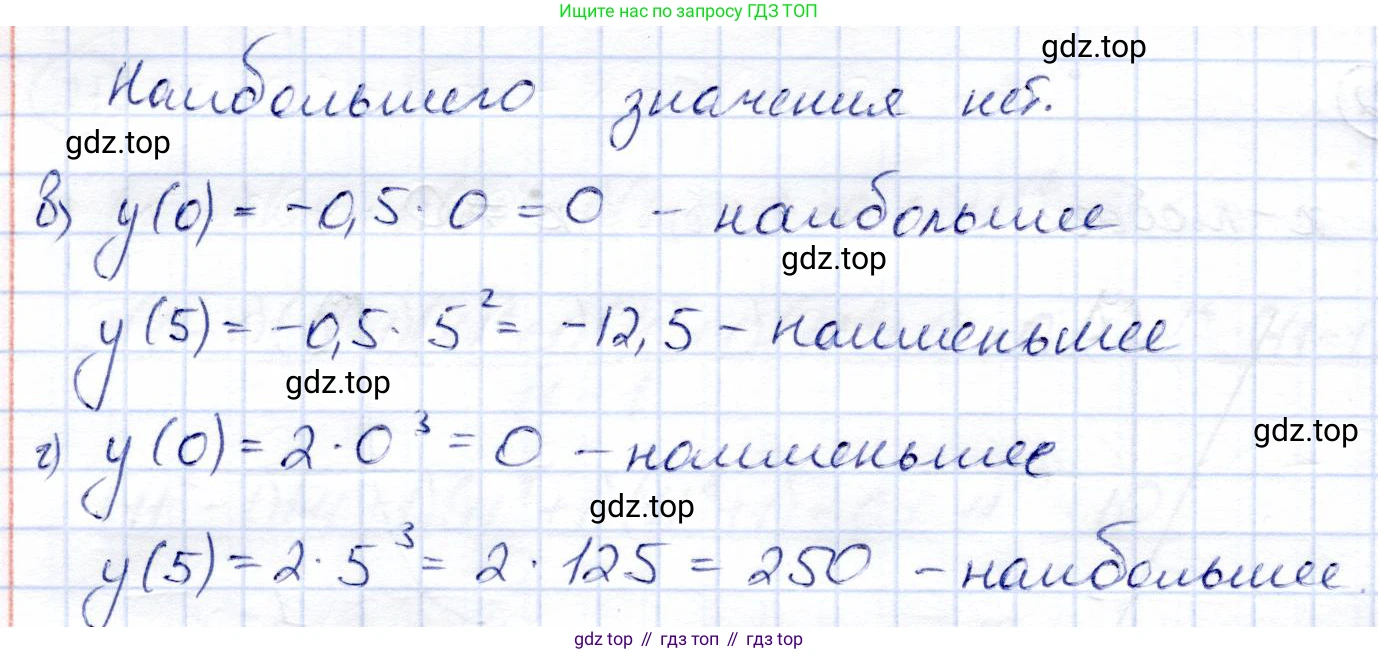 Ищите нас по запросу ГДЗ ТОП
gdz.top
Наибольшего значения нет.
gdz.top
в) y(0) = -0,5 · 0 = 0 - наибольшее
gdz.top
y(5) = -0,5 · 5² = -12,5 - наименьшее
gdz.top
г) y(0) = 2 · 0³ = 0 - наименьшее
gdz.top
gdz.top
y(5) = 2 · 5³ = 2 · 125 = 250 - наибольшее.
gdz top // гдз топ // гдз top